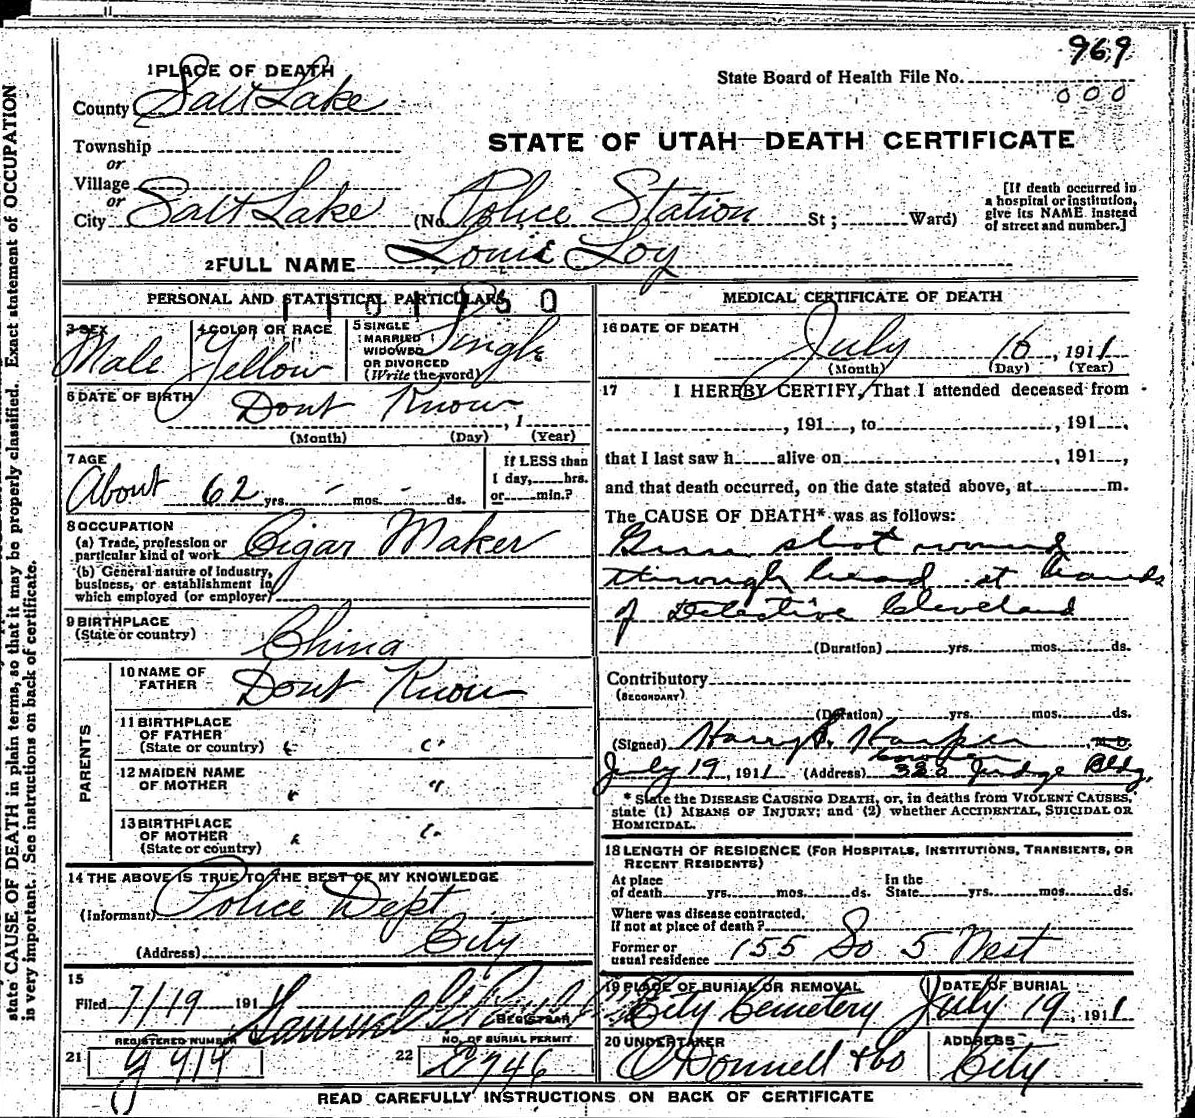 969
State Board of Health File No.
000
1 PLACE OF DEATH
County Salt Lake
STATE OF UTAH—DEATH CERTIFICATE
Township
or
Village
or
City Salt Lake (No. Police Station St; Ward)
[If death occurred in
a hospital or institution,
give its NAME instead
of street and number.]
2 FULL NAME Louie Loy
PERSONAL AND STATISTICAL PARTICULARS
3 SEX
Male
4 COLOR OR RACE
Yellow
5 SINGLE
MARRIED
WIDOWED
OR DIVORCED
(Write the word)
Single
6 DATE OF BIRTH
Dont Know
, 1
(Month) (Day) (Year)
7 AGE
About 62 yrs. - mos. - ds.
If LESS than
1 day, hrs.
or min.?
8 OCCUPATION
(a) Trade, profession or
particular kind of work Cigar Maker
(b) General nature of industry,
business, or establishment in
which employed (or employer)
9 BIRTHPLACE
(State or country) China
PARENTS
10 NAME OF
FATHER Dont Know
11 BIRTHPLACE
OF FATHER
(State or country) " "
12 MAIDEN NAME
OF MOTHER " "
13 BIRTHPLACE
OF MOTHER
(State or country) " "
14 THE ABOVE IS TRUE TO THE BEST OF MY KNOWLEDGE
(Informant) Police Dept
(Address) City
15
Filed 7/19 191 Samuel G
REGISTRAR
21 REGISTERED NUMBER
g 914
22 NO. OF BURIAL PERMIT
E746
MEDICAL CERTIFICATE OF DEATH
16 DATE OF DEATH
July 16, 1911
(Month) (Day) (Year)
17 I HEREBY CERTIFY, That I attended deceased from
, 191 , to , 191 ,
that I last saw h alive on , 191 ,
and that death occurred, on the date stated above, at m.
The CAUSE OF DEATH* was as follows:
Gun shot wound
through head at hands
of Detective Cleveland
(Duration) yrs. mos. ds.
Contributory
(SECONDARY)
(Duration) yrs. mos. ds.
(Signed) Harry S. Harper, M.D.
July 19, 1911 (Address) 320 Judge Bldg.
* State the DISEASE CAUSING DEATH, or, in deaths from VIOLENT CAUSES,
state (1) MEANS OF INJURY; and (2) whether ACCIDENTAL, SUICIDAL OR
HOMICIDAL.
18 LENGTH OF RESIDENCE (FOR HOSPITALS, INSTITUTIONS, TRANSIENTS, OR
RECENT RESIDENTS)
At place In the
of death yrs. mos. ds. State yrs. mos. ds.
Where was disease contracted,
If not at place of death?
Former or
usual residence 155 So 5 West
19 PLACE OF BURIAL OR REMOVAL
City Cemetery
DATE OF BURIAL
July 19, 1911
20 UNDERTAKER
O'Donnell & Co
ADDRESS
City
READ CAREFULLY INSTRUCTIONS ON BACK OF CERTIFICATE
state CAUSE OF DEATH in plain terms, so that it may be properly classified. Exact statement of OCCUPATION
is very important. See instructions on back of certificate.